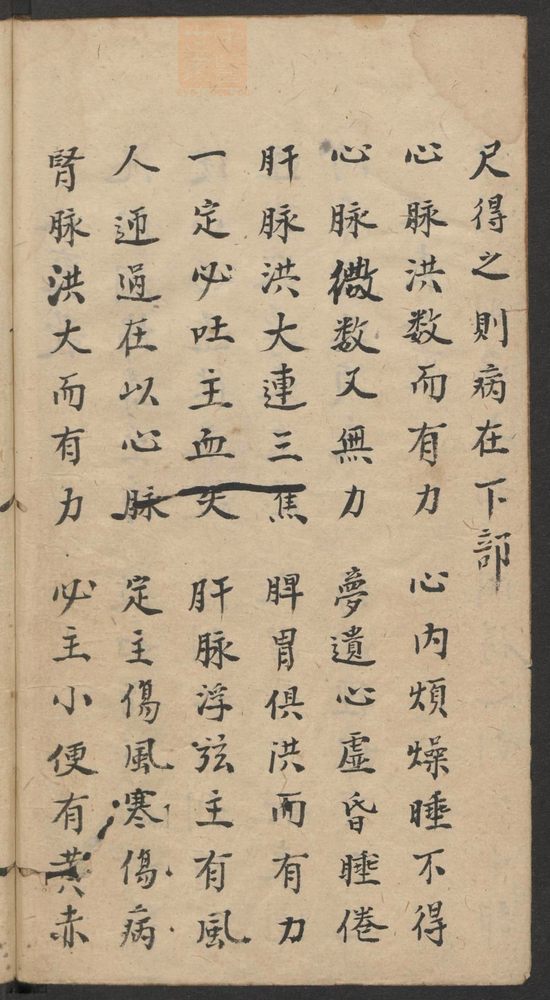 尺得之則病在下部
心脉洪数而有力　心内煩燥睡不得
心脉微数又無力　夢遺心虚昏睡倦
肝脉洪大連三焦　脾胃俱洪而有力
一定必吐主血失　肝脉浮弦主有風
人迎過在以心脉　定主傷風寒傷病
腎脉洪大而有力　必主小便有黄赤